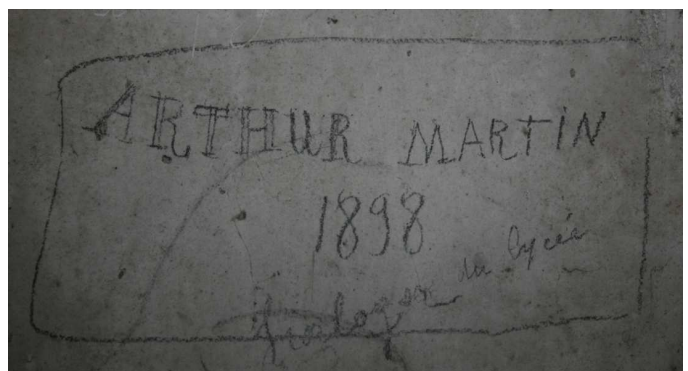 ARTHUR MARTIN
1898
du lycée